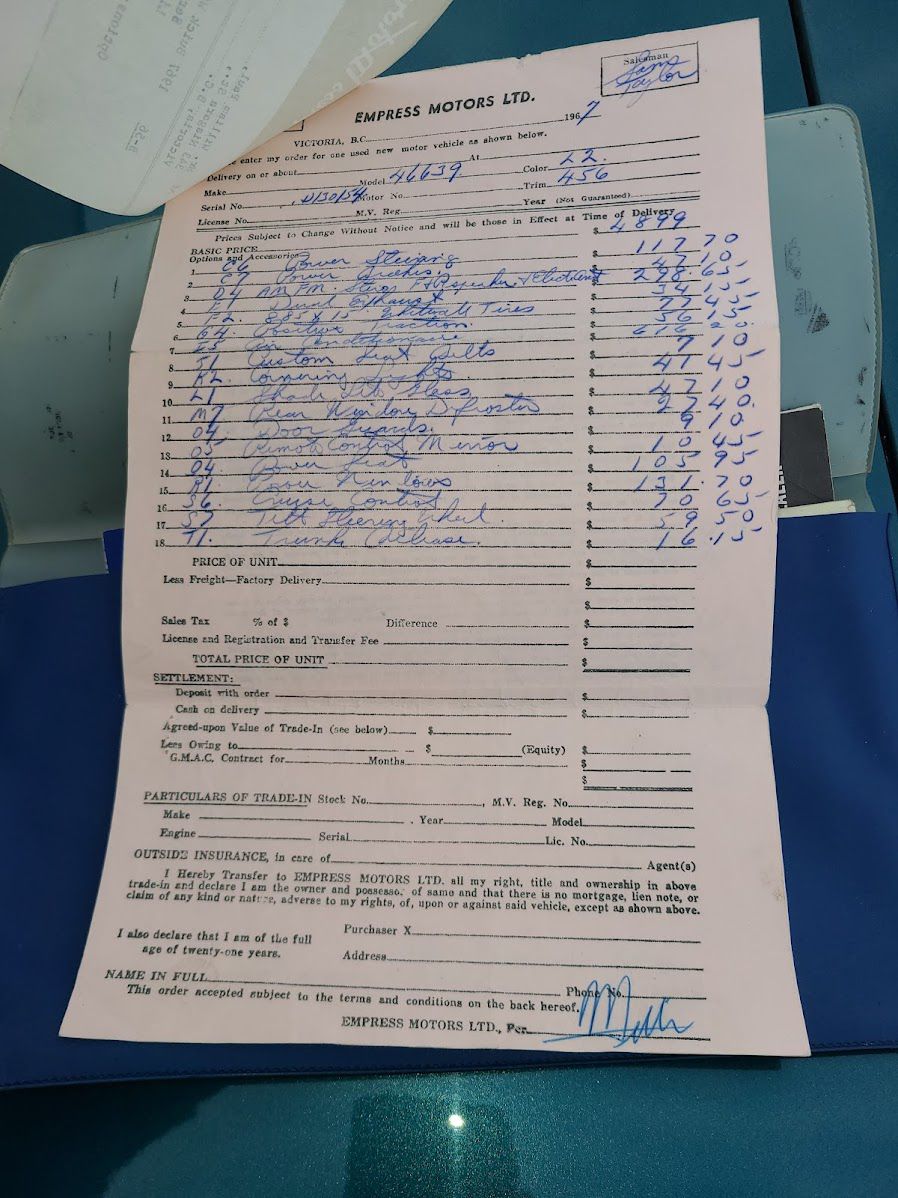 Options
1967 Buick W
Victoria, B.C.
B-26
Salesman
Sam Taylor
EMPRESS MOTORS LTD.
VICTORIA, B.C. 1967
enter my order for one used new motor vehicle as shown below.
Delivery on or about At
Make Model 46639 Color L2.
Serial No. Motor No. Trim 456
License No. M.V. Reg. Year (Not Guaranteed)
Prices Subject to Change Without Notice and will be those in Effect at Time of Delivery
BASIC PRICE $ 4899
Options and Accessories
1 Power Steering $ 117 70
2 Power Brakes. $ 47 10
3 AM FM. Stereo $ 298. 65
4 Dual Exhaust $ 34
5 885 x 15 Whitewall Tires $
6 Positive Traction. $ 56 15
7 Air Conditionaire $
8 Custom Seat Belts $ 7 10
9 Cornering Lights $ 41 45
10 Shade Lite Glass $ 47 10
11 Rear Window Defroster $ 27 40
12 Door Guards. $ 9 10
13 Remote Control Mirror $ 10 45
14 Power Seat $ 105 95
15 Power Windows $ 131. 70
16 Cruise Control $ 70 65
17 Tilt Steering Wheel. $ 59 50
18 T1. Trunk Release. $ 16. 15
PRICE OF UNIT $
Less Freight—Factory Delivery $
$
Sales Tax % of $ Difference $
License and Registration and Transfer Fee $
TOTAL PRICE OF UNIT $
SETTLEMENT:
Deposit with order $
Cash on delivery $
Agreed-upon Value of Trade-In (see below) $
Less Owing to $ (Equity) $
G.M.A.C. Contract for Months $
$
PARTICULARS OF TRADE-IN Stock No. , M.V. Reg. No.
Make , Year Model
Engine Serial Lic. No.
OUTSIDE INSURANCE, in care of Agent(s)
I Hereby Transfer to EMPRESS MOTORS LTD. all my right, title and ownership in above
trade-in and declare I am the owner and possessor of same and that there is no mortgage, lien note, or
claim of any kind or nature, adverse to my rights, of, upon or against said vehicle, except as shown above.
I also declare that I am of the full
age of twenty-one years.
Purchaser X
Address
NAME IN FULL Phone No.
This order accepted subject to the terms and conditions on the back hereof.
EMPRESS MOTORS LTD., Per.